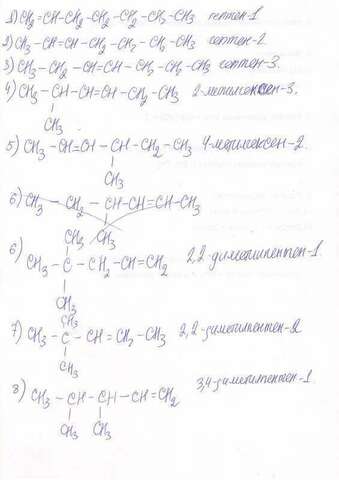 1) CH2=CH-CH2-CH2-CH2-CH2-CH3 гептен-1
2) CH3-CH=CH-CH2-CH2-CH2-CH3 гептен-2.
3) CH3-CH2-CH=CH-CH2-CH2-CH3 гептен-3.
4) CH3-CH-CH=CH-CH2-CH3 2-метилгексен-3.
CH3
5) CH3-CH=CH-CH-CH2-CH3 4-метилгексен-2.
CH3
6) CH3-CH2-CH-CH=CH-CH3
CH3
CH3
6) CH3-C-CH2-CH=CH2 2,2-диметилпентен-1.
CH3
CH3
7) CH3-C-CH=CH2-CH3 2,2-диметилпентен-2
CH3
8) CH3-CH-CH-CH=CH2 3,4-диметилпентен-1.
CH3 CH3